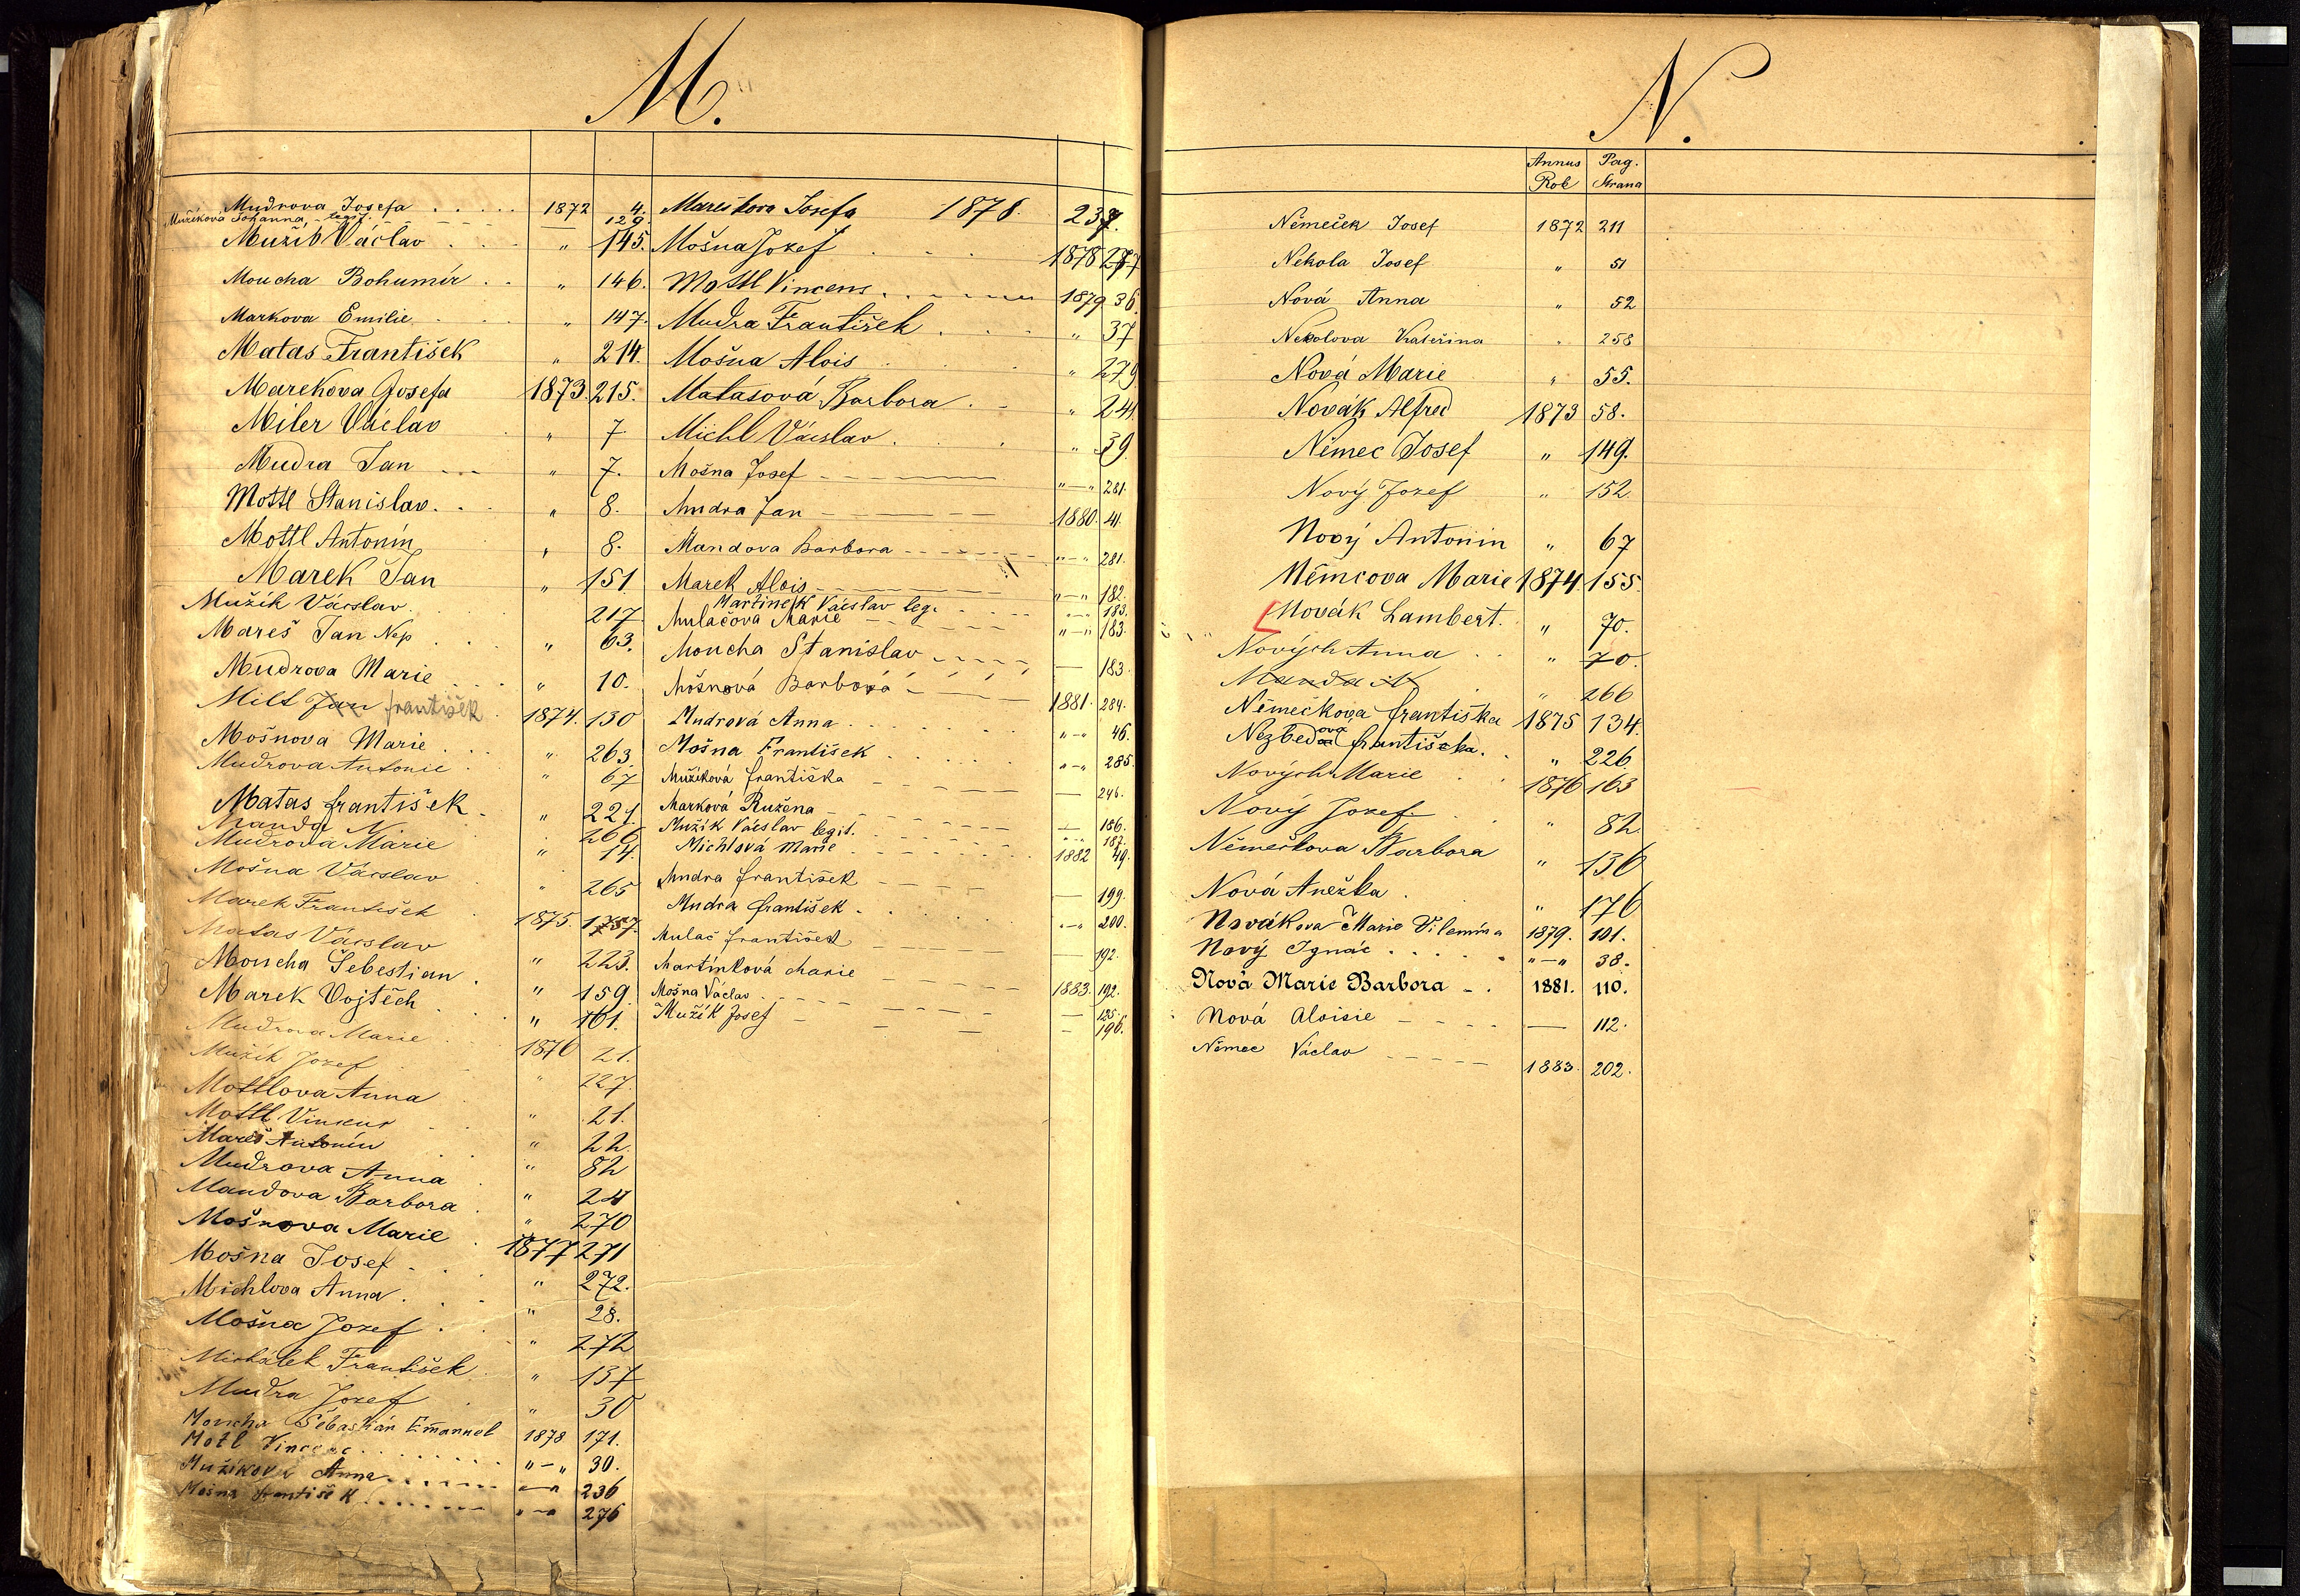 M.
Mudrova Josefa . . . . 1872 4.
Mužíková Johanna - legit. - - - - - 129.
Mužík Václav . . . " 145.
Moucha Bohumír . . " 146.
Markova Emilie . . . " 147.
Matas František " 214.
Marekova Josefa 1873. 215.
Miler Václav . " 7.
Mudra Jan - - - " 7.
Mottl Stanislav. . . " 8.
Mottl Antonín " 8.
Marek Jan " 151
Mužík Václav. . . 217
Mareš Jan Nep . . . " 63.
Mudrova Marie . . . " 10.
Milt Jan františek 1874. 130
Mošnova Marie . . . " 263
Mudrova Antonie . " 67
Matas františek . " 221.
Manda N. 266
Mudrova Marie " 14.
Mošna Václav . " 265
Marek František . 1875. 157.
Matas Václav " 223.
Moucha Šebestian . " 159.
Marek Vojtěch . " 161.
Mudrova Marie . 1876 21.
Mužík Jozef . " 227.
Mottlova Anna . " 21.
Mottl Vincenc . " 22.
Mareš Antonín . " 82
Mudrova Anna . " 24
Mandova Barbora . " 270
Mošnova Marie . 1877 271
Mošna Josef - . . " 272.
Michlova Anna . . . " 28.
Mošna Jozef . . . " 272
Michálek František . " 137
Mudra Jozef . " 30
Moucha Sebastián Emanuel 1878 171.
Motl Vincenc . . . . . . "-" 30.
Mužíkova Anna . . . . "-" 236
Mošna František . . . . "-" 276
Mareškova Josefa 1878. 237.
Mošna Jozef . . . 1878 277
Mottl Vincenc . . . . 1879 36.
Mudra František . . . " 37
Mošna Alois . . . " 279
Matasová Barbora . - " 241
Michl Václav . . . " 39
Mošna Josef - - - - "—" 281.
Mudra Jan - - - 1880. 41.
Mandova Barbora - - - - "—" 281.
Marek Alois - - - "—" 182.
Martinek Václav leg. . . . "—" 183.
Mulačova Marie - - - - "—" 183.
Moucha Stanislav - - - - — 183.
Mošnová Barbora - - - 1881. 284.
Mudrová Anna . . . . . "-" 46.
Mošna František . . . . "-" 285.
Mužíková františka - - - — 246.
Marková Ružena - - - — 186.
Mužík Václav legit. . . . . "-" 187.
Michlová Marie . . . . . 1882 49.
Mudra františek - - - - — 199.
Mudra františek . . . . "-" 200.
Mulač františek - - - — 192.
Martínková Marie - - - 1883. 192.
Mošna Václav - - - - - — 125.
Mužík Josef - - - - 196.
N.
Annus Rok Pag. Strana
Němeček Josef 1872 211
Nekola Josef " 51
Nová Anna " 52
Nekolova Kateřina " 258
Nová Marie " 55.
Novák Alfred 1873 58.
Němec Josef " 149.
Nový Jozef " 152.
Nový Antonin " 67
Němcova Marie 1874. 155.
Novák Lambert. " 70.
Nových Anna . . " 70.
Manda N . " 266
Němečkova františka 1875 134.
Nezbedová františka. . " 226.
Nových Marie . . 1876 163
Nový Jozef . . " 82.
Němečkova Barbora " 136
Nová Anežka . " 176
Nováková Marie Vilemína 1879. 101.
Nový Ignác . . . . . "—" 38.
Nová Marie Barbora - . 1881. 110.
Nová Aloisie - - - - — 112.
Němec Václav - - - - - 1883. 202.